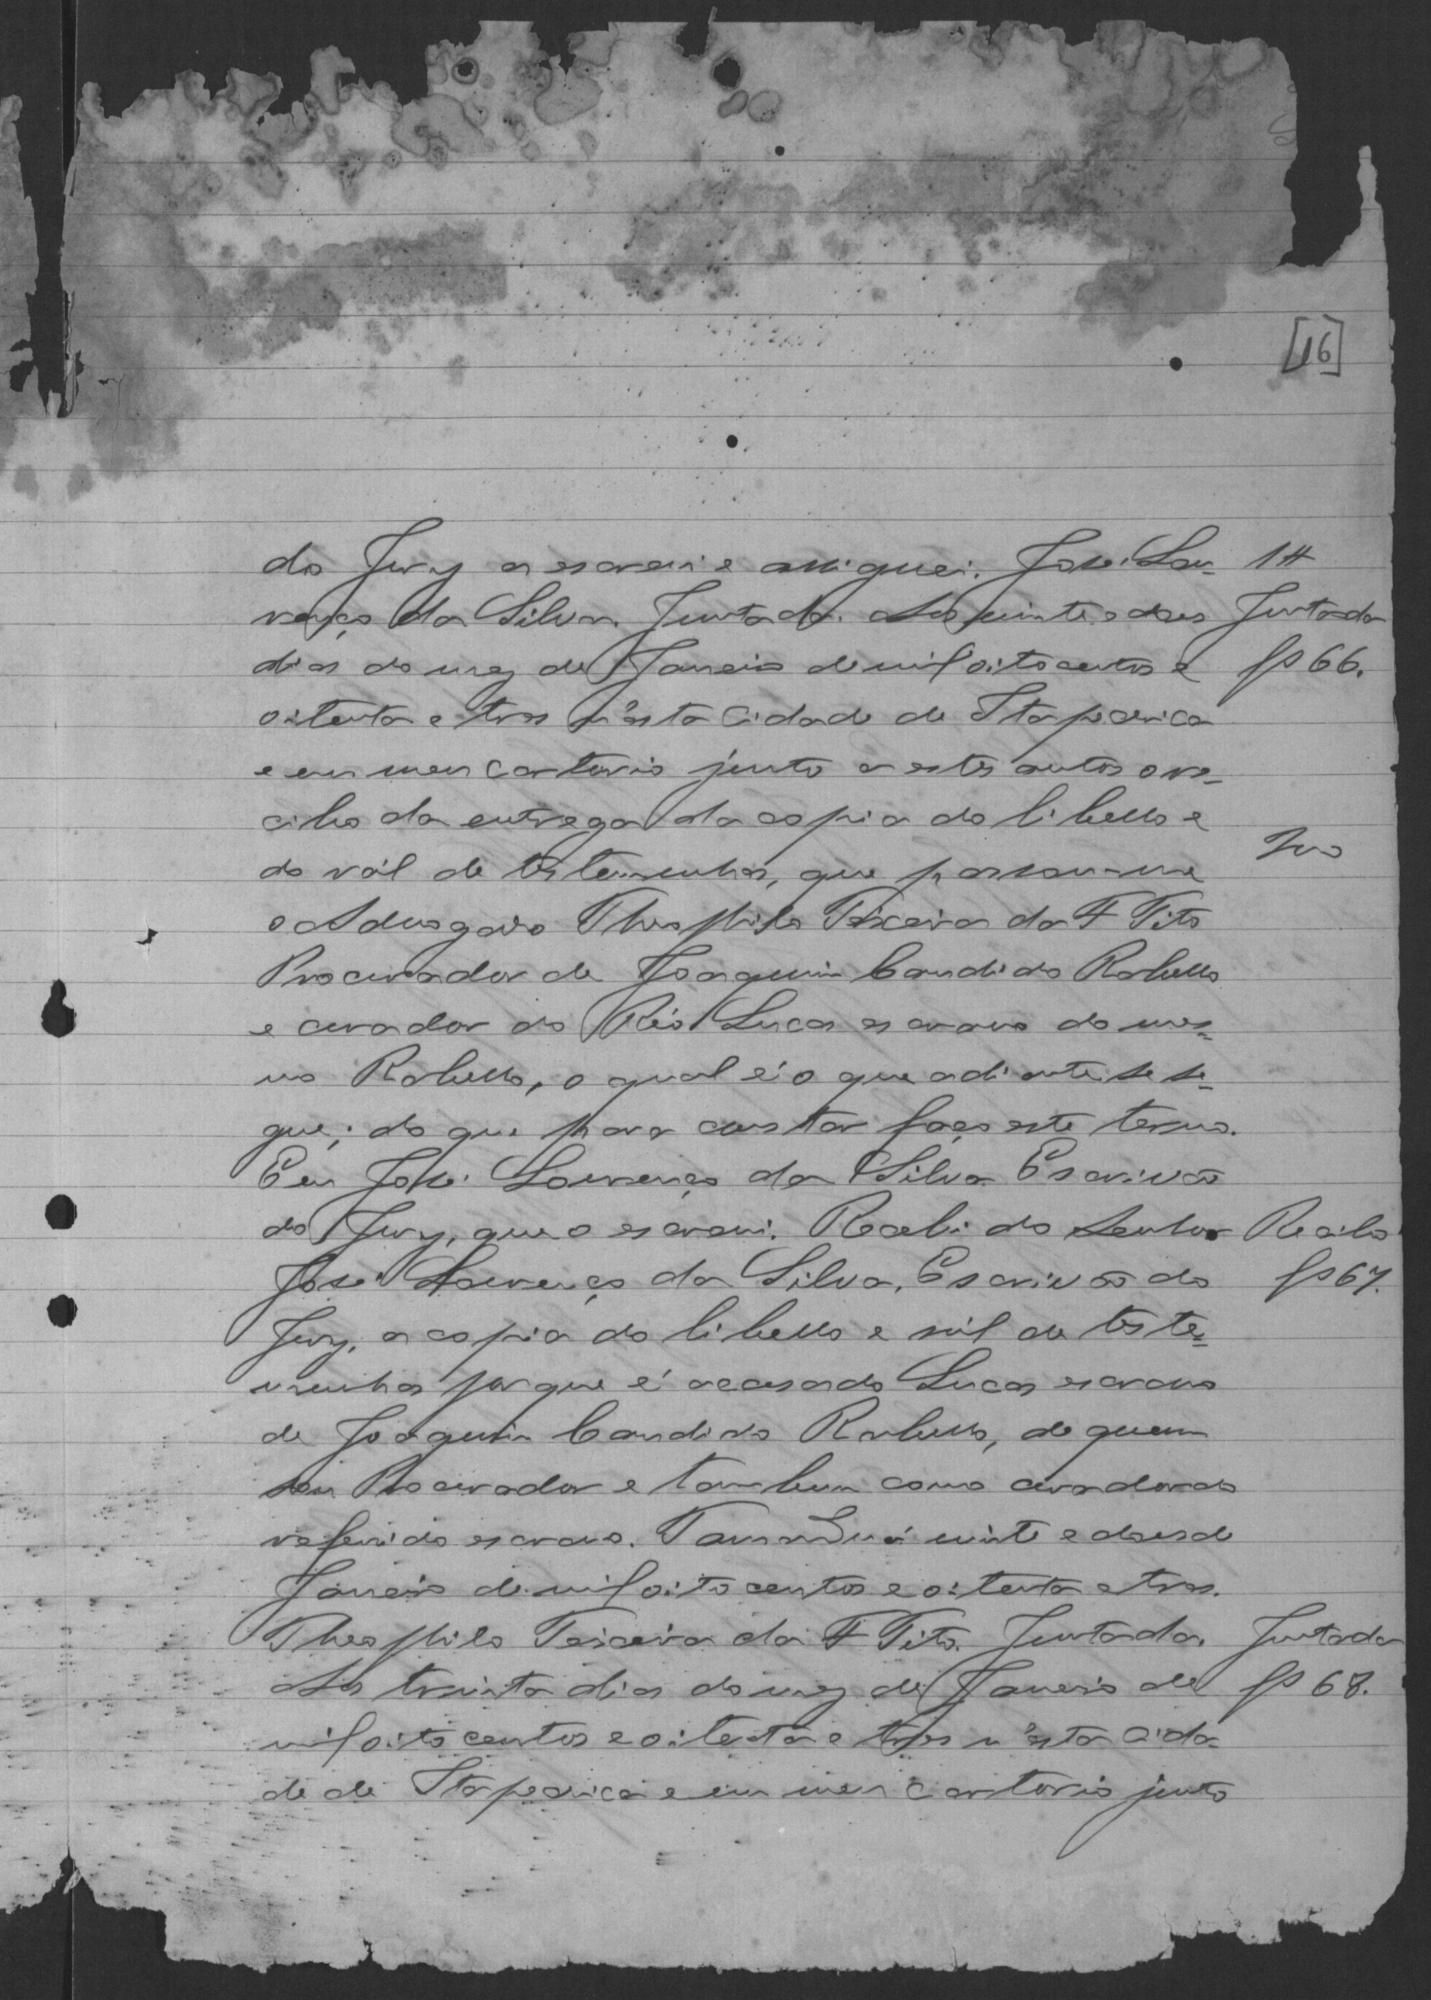 [16]
do Jury a escrevi e assignei. José Lou- 14
renço da Silva. Juntada. Aos vinte e dous Juntada
dias do mez de Janeiro de mil oitocentos e fs 66.
oitenta e tres n'esta Cidade de Itapecerica
e em meu cartorio junto a estes autos o re-
cibo da entrega da copia do libello e
do ról de testemunhas, que passou-me
o Advogado Theophilo Teixeira da F Tito
Procurador de Joaquim Candido Rabello
e curador do Réo Lucas escravo do mes-
mo Rabello, o qual é o que adiante se se-
gue; do que para constar faço este termo.
Eu José Lourenço da Silva Escrivão
do Jury, que o escrevi. Recebi do Senhor Recibo
José Lourenço da Silva, Escrivão do fs 67.
Jury, a copia do libello e ról de teste-
munhas porque é accusado Lucas escravo
de Joaquim Candido Rabello, de quem
sou Procurador e tambem como curador do
referido escravo. Tamanduá vinte e dous de
Janeiro de mil oito centos e oitenta e tres.
Theophilo Teixeira da F Tito. Juntada. Juntada
Aos trinta dias do mez de Janeiro de fs 68.
mil oito centos e oitenta e tres n'esta Cida-
de de Itapecerica e em meu cartorio junto